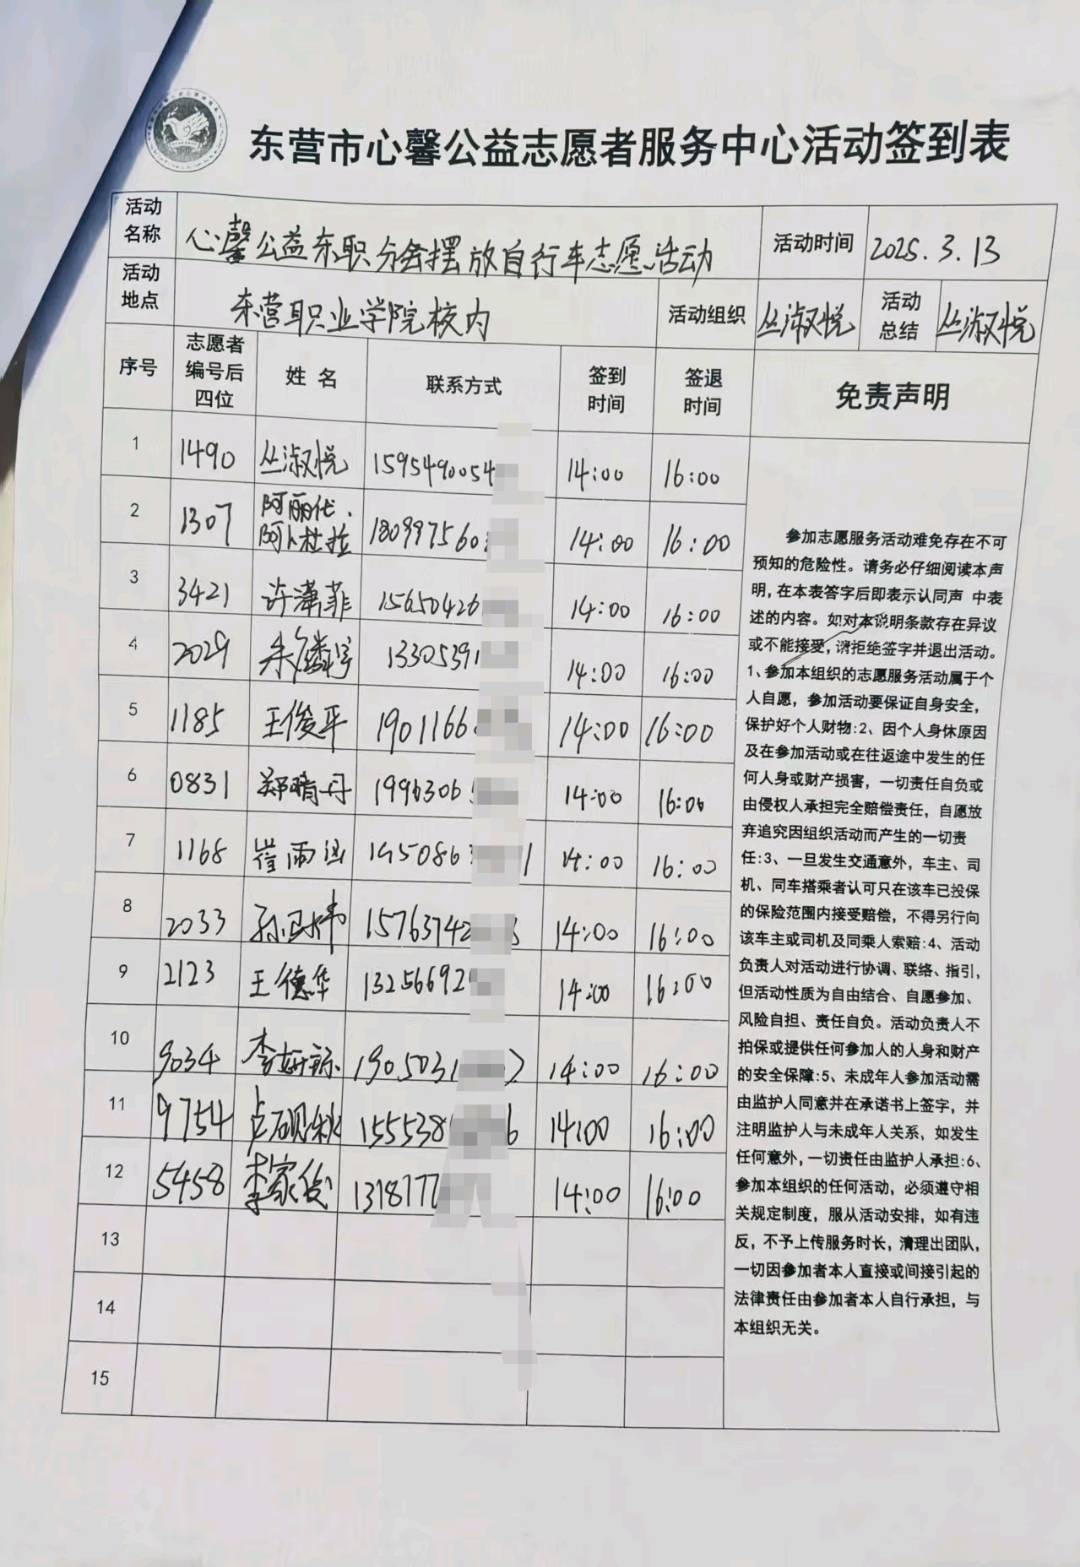 东营市心馨公益志愿者服务中心活动签到表
活动名称 心馨公益东职分会摆放自行车志愿活动 活动时间 2025.3.13
活动地点 东营职业学院校内 活动组织 丛淑悦 活动总结 丛淑悦
序号 志愿者编号后四位 姓名 联系方式 签到时间 签退时间 免责声明
1 1490 丛淑悦 1595490054 14:00 16:00
2 1307 阿丽代·阿卜杜拉 180997560 14:00 16:00
3 3421 许潇菲 15650426 14:00 16:00
4 2029 14:00 16:00 13305391
5 1185 王俊平 1901166 14:00 16:00
6 0831 郑晴丹 1996306 14:00 16:00
7 1168 崔雨涵 14:00 16:00
8 2033 15763742 14:00 16:00
9 2123 王德华 13256692 14:00 16:00
10 9034 李妍 1905031 14:00 16:00
11 9754 卢砚秋 155538 6 14:00 16:00
12 5458 李家俊 1318177 14:00 16:00
13
14
15
参加志愿服务活动难免存在不可
预知的危险性。请务必仔细阅读本声
明,在本表签字后即表示认同声 中表
述的内容。如对本说明条款存在异议
或不能接受,请拒绝签字并退出活动。
1、参加本组织的志愿服务活动属于个
人自愿，参加活动要保证自身安全，
保护好个人财物:2、因个人身休原因
及在参加活动或在往返途中发生的任
何人身或财产损害，一切责任自负或
由侵权人承担完全赔偿责任，自愿放
弃追究因组织活动而产生的一切责
任:3、一旦发生交通意外，车主、司
机、同车搭乘者认可只在该车已投保
的保险范围内接受赔偿，不得另行向
该车主或司机及同乘人索赔:4、活动
负责人对活动进行协调、联络、指引，
但活动性质为自由结合、自愿参加、
风险自担、责任自负。活动负责人不
拍保或提供任何参加人的人身和财产
的安全保障:5、未成年人参加活动需
由监护人同意并在承诺书上签字，并
注明监护人与未成年人关系，如发生
任何意外,一切责任由监护人承担:6、
参加本组织的任何活动，必须遵守相
关规定制度，服从活动安排，如有违
反，不予上传服务时长，清理出团队，
一切因参加者本人直接或间接引起的
法律责任由参加者本人自行承担，与
本组织无关。